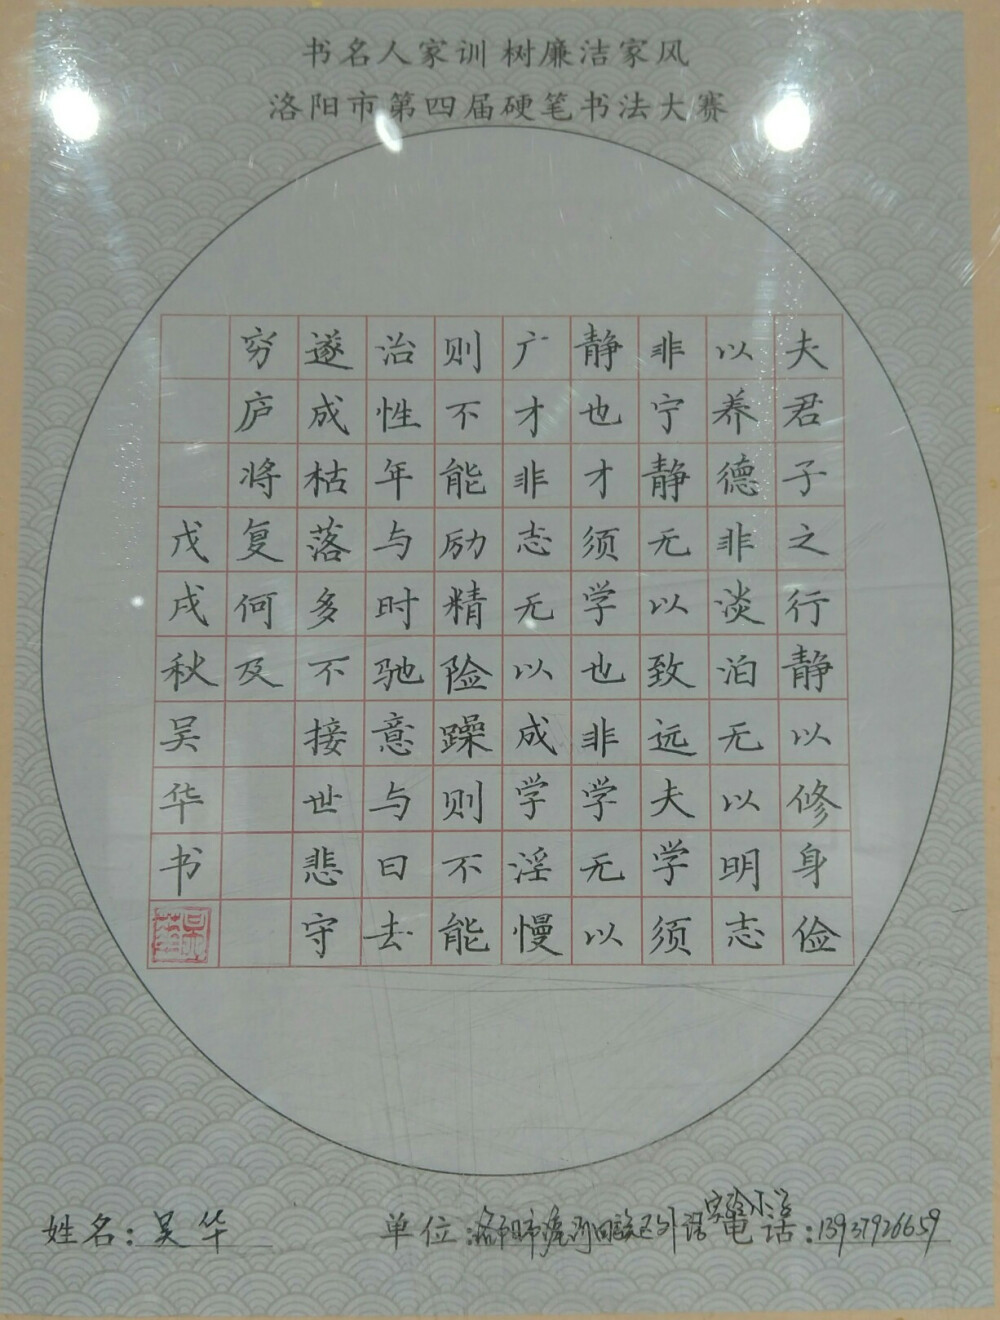 书名人家训 树廉洁家风
洛阳市第四届硬笔书法大赛
夫君子之行静以修身俭
以养德非淡泊无以明志
非宁静无以致远夫学须
静也才须学也非学无以
广才非志无以成学淫慢
则不能励精险躁则不能
治性年与时驰意与日去
遂成枯落多不接世悲守
穷庐将复何及
戊戌秋吴华书
吴华
姓名:吴华
单位:洛阳市瀍河回族区外语实验小学
电话:13937926659